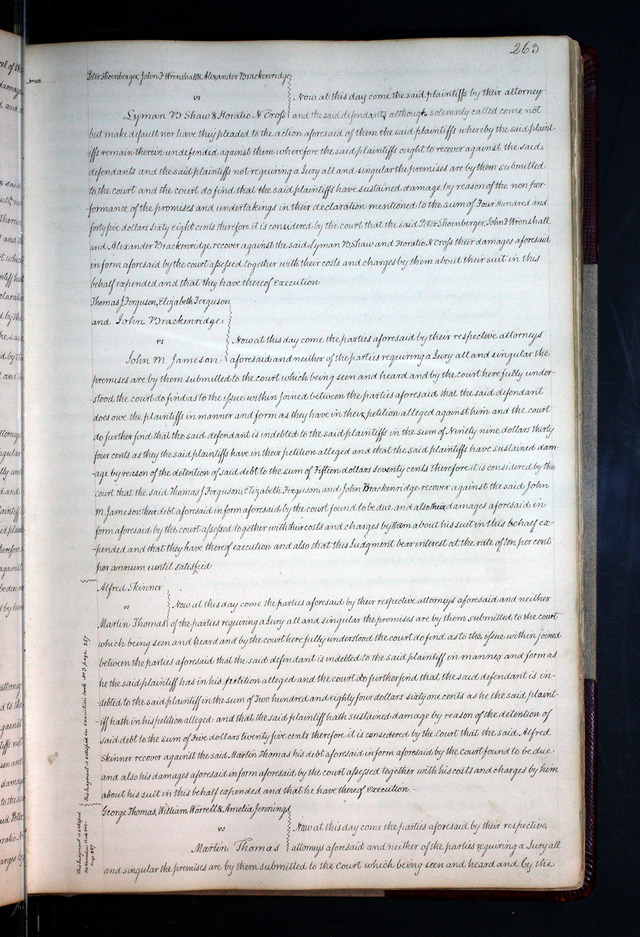 263
Peter Shoenberger, John F Wrenshall & Alexander Brackenridge
vs Now at this day come the said plaintiffs by their attorney
Lyman B Shaw & Horatio N Cross and the said defendants although solemnly called come not
but make default nor have they pleaded to the action aforesaid of them the said plaintiffs whereby the said plaint-
iffs remain therein undefended against them wherefore the said plaintiffs ought to recover against the said
defendants and the said plaintiffs not requiring a Jury all and singular the premises are by them submitted
to the court and the court do find that the said plaintiffs have sustained damage by reason of the non per-
formance of the promises and undertakings in their declaration mentioned to the sum of Four Hundred and
forty five dollars sixty eight cents therefore it is considered by the court that the said Peter Shoenberger, John F Wrenshall
and Alexander Brackenridge recover against the said Lyman B Shaw and Horatio N Cross their damages aforesaid
in form aforesaid by the court assessed together with their costs and charges by them about their suit in this
behalf expended and that they have thereof execution
Thomas J Ferguson, Elizabeth Ferguson
and John Brackenridge
vs Now at this day come the parties aforesaid by their respective attorneys
John M Jameson aforesaid and neither of the parties requiring a Jury all and singular the
premises are by them submitted to the court which being seen and heard and by the court here fully under-
stood the court do find as to the issue within joined between the parties aforesaid that the said defendant
does owe the plaintiffs in manner and form as they have in their petition alleged against him and the court
do further find that the said defendant is indebted to the said plaintiffs in the sum of Ninety nine dollars thirty
four cents as they the said plaintiffs have in their petition alleged and that the said plaintiffs have sustained dam-
age by reason of the detention of said debt to the sum of Fifteen dollars seventy cents therefore it is considered by the
court that the said Thomas J Ferguson, Elizabeth Ferguson and John Brackenridge recover against the said John
M Jameson their debt aforesaid in form aforesaid by the court found to be due and also their damages aforesaid in
form aforesaid by the court assessed together with their costs and charges by them about his suit in this behalf ex-
pended and that they have thereof execution and also that this Judgment bear interest at the rate of ten per cent
per annum until satisfied
Alfred Skinner
vs Now at this day come the parties aforesaid by their respective attorneys aforesaid and neither
Martin Thomas of the parties requiring a Jury all and singular the premises are by them submitted to the court
which being seen and heard and by the court here fully understood the court do find as to the issue within joined
between the parties aforesaid that the said defendant is indebted to the said plaintiff in manner and form as
he the said plaintiff has in his petition alleged and the court do further find that the said defendant is in-
debted to the said plaintiff in the sum of Two hundred and eighty four dollars sixty one cents as he the said plaint-
iff hath in his petition alleged and that the said plaintiff hath sustained damage by reason of the detention of
said debt to the sum of Five dollars twenty five cents therefore it is considered by the Court that the said Alfred
Skinner recover against the said Martin Thomas his debt aforesaid in form aforesaid by the court found to be due
and also his damages aforesaid in form aforesaid by the court assessed together with his costs and charges by him
about his suit in this behalf expended and that he have thereof execution
This Judgment is satisfied see execution book page 257
George Thomas, William Worrell & Amelia Jennings
vs Now at this day come the parties aforesaid by their respective
Martin Thomas attorneys aforesaid and neither of the parties requiring a Jury all
and singular the premises are by them submitted to the court which being seen and heard and by the
This Judgment is satisfied